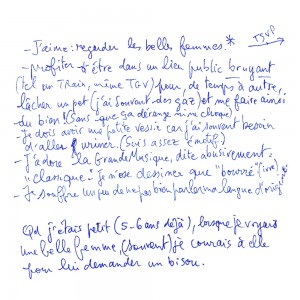 - J'aime : regarder les belles femmes.* TSVP
- profiter d'être dans un lieu public bruyant
(tel un Train, même TGV) pour, de temps à autre,
lâcher un pet (j'ai souvent des gaz) et me faire ainsi
du bien ! Sans que ça dérange ni ne choque)
- Je dois avoir une petite vessie car j'ai souvent besoin
d'aller uriner. (Suis assez émotif)
- J'adore la Grande Musique, dite abusivement
"classique". Je n'ose dessiner que "bourré" (ivre)
- Je souffre un peu de ne pas bien parler ma langue d'origine
Qd j'étais petit (5-6 ans déjà), lorsque je voyais
une belle femme, (souvent) je courais à elle
pour lui demander un bisou.